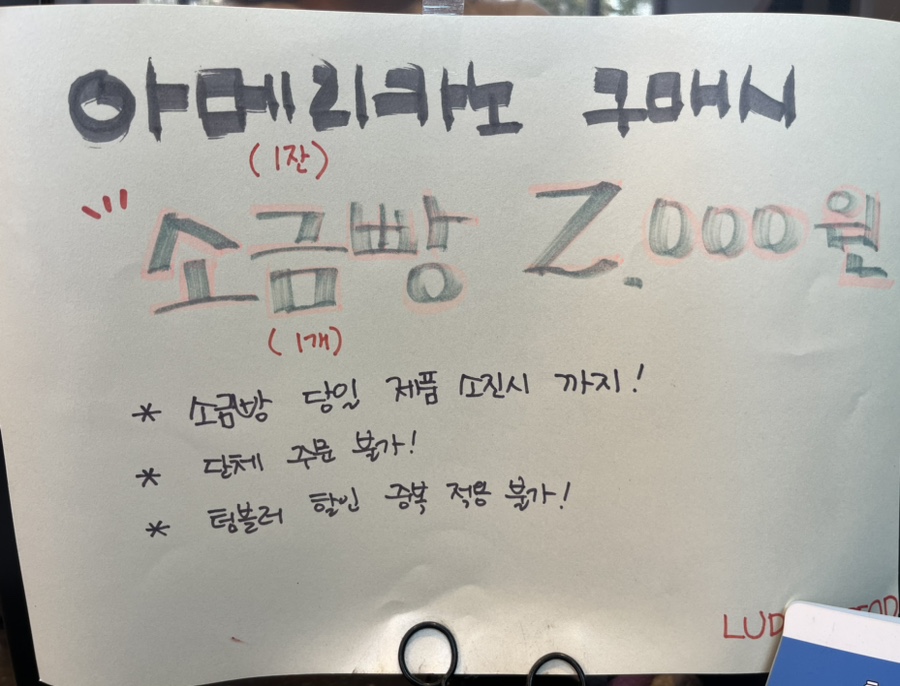 아메리카노 구매시
(1잔)
소금빵 2.000원
(1개)
* 소금빵 당일 제품 소진시 까지!
* 단체 주문 불가!
* 텀블러 할인 중복 적용 불가!